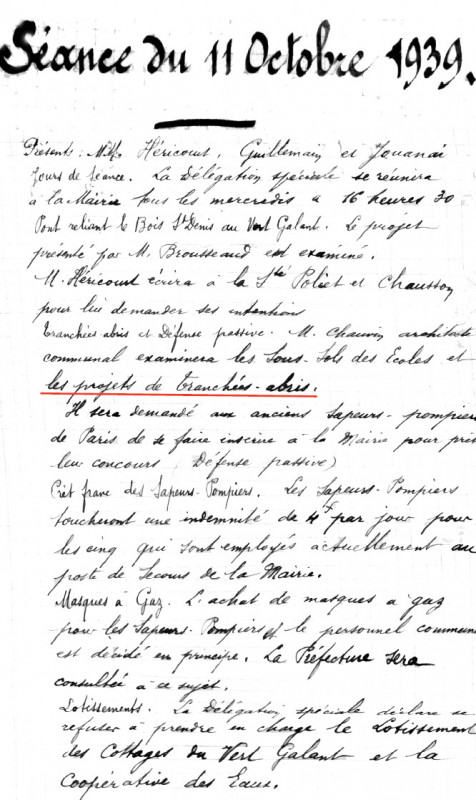 Séance du 11 Octobre 1939.
Présents : MM. Héricourt, Guillemain et Jouanai
Jours de Séance. La Délégation spéciale se réunira
à la Mairie tous les mercredis à 16 heures 30
Pont reliant le Bois St Denis au Vert Galant. Le projet
présenté par M. Brousseaud est examiné.
M. Héricourt écrira à la Sté Poliet et Chausson
pour lui demander ses intentions
Tranchées abris et Défense passive. M. Chauvin architecte
communal examinera les Sous-Sols des Ecoles et
les projets de Tranchées-abris.
Il sera demandé aux anciens Sapeurs-pompiers
de Paris de se faire inscrire à la Mairie pour
leur concours Défense passive)
des Sapeurs-Pompiers. Les Sapeurs-Pompiers
toucheront une indemnité de 4f par jour pour
les cinq qui sont employés actuellement au
poste de Secours de la Mairie.
Masques à Gaz. L'achat de masques à gaz
pour les Sapeurs-Pompiers et le personnel commun
est décidé en principe. La Préfecture sera
consultée à ce sujet.
Lotissements. La Délégation spéciale déclare se
refuser à prendre en charge le Lotissement
des Cottages du Vert Galant et la
Coopérative des Eaux.